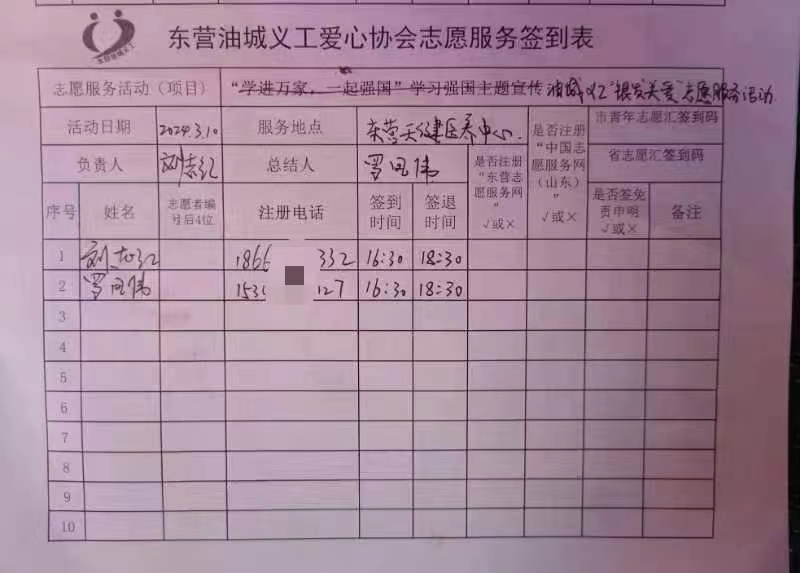 东营油城义工
东营油城义工爱心协会志愿服务签到表
志愿服务活动（项目） “学进万家，一起强国”学习强国主题宣传 油城义工“银发关爱”志愿服务活动
活动日期 2024.3.10 服务地点 东营天健医养中心 是否注册“中国志愿服务网（山东）” √或× 市青年志愿汇签到码
负责人 刘志红 总结人 罗国伟 是否注册“东营志愿服务网” √或× 省志愿汇签到码
序号 姓名 志愿者编号后4位 注册电话 签到时间 签退时间 是否签免责申明 √或× 备注
1 刘志红 1866 332 16:30 18:30
2 罗国伟 153 127 16:30 18:30
3
4
5
6
7
8
9
10